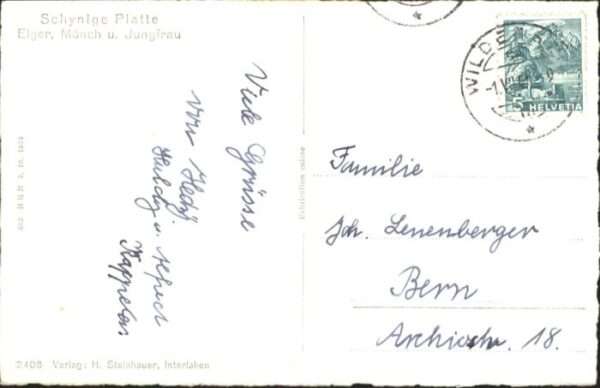 Schynige Platte
Eiger, Mönch u. Jungfrau
Viele Grüsse
von Hedy
Huldy u.
Kappeler
WILDE
5 HELVETIA
Familie
Joh. Lenenberger
Bern
Archivstr. 18.
2408 Verlag: H. Steinhauer, Interlaken